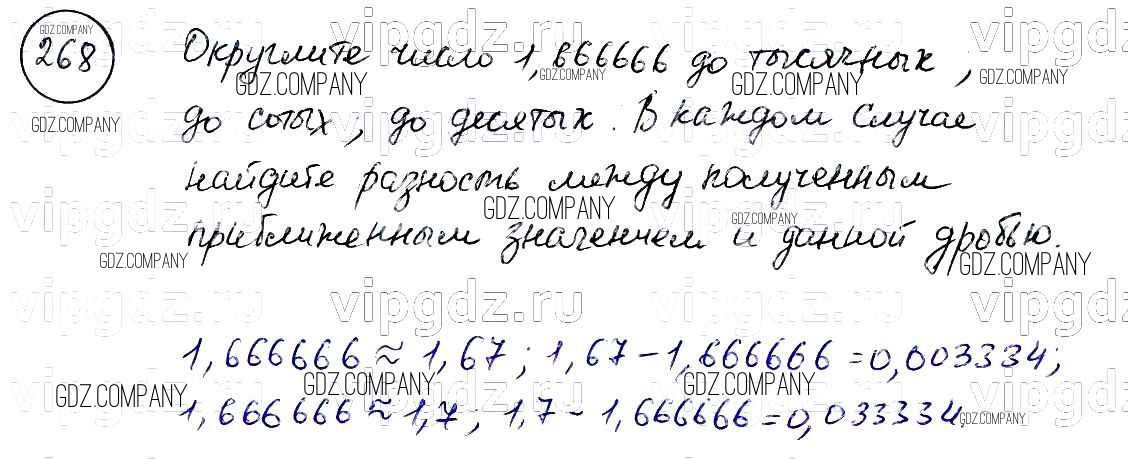 GDZ.COMPANY
268
Округлите число 1,666666 до тысячных,
GDZ.COMPANY GDZ.COMPANY GDZ.COMPANY
до сотых, до десятых. В каждом случае
GDZ.COMPANY
найдите разность между полученным
GDZ.COMPANY GDZ.COMPANY
приближенным значением и данной дробью.
GDZ.COMPANY GDZ.COMPANY
vipgdz.ru vipgdz.ru vipgdz.ru vipgdz.ru
1,666666 ≈ 1,67; 1,67 - 1,666666 = 0,003334;
GDZ.COMPANY GDZ.COMPANY GDZ.COMPANY
1,666666 ≈ 1,7; 1,7 - 1,666666 = 0,033334.
GDZ.COMPANY